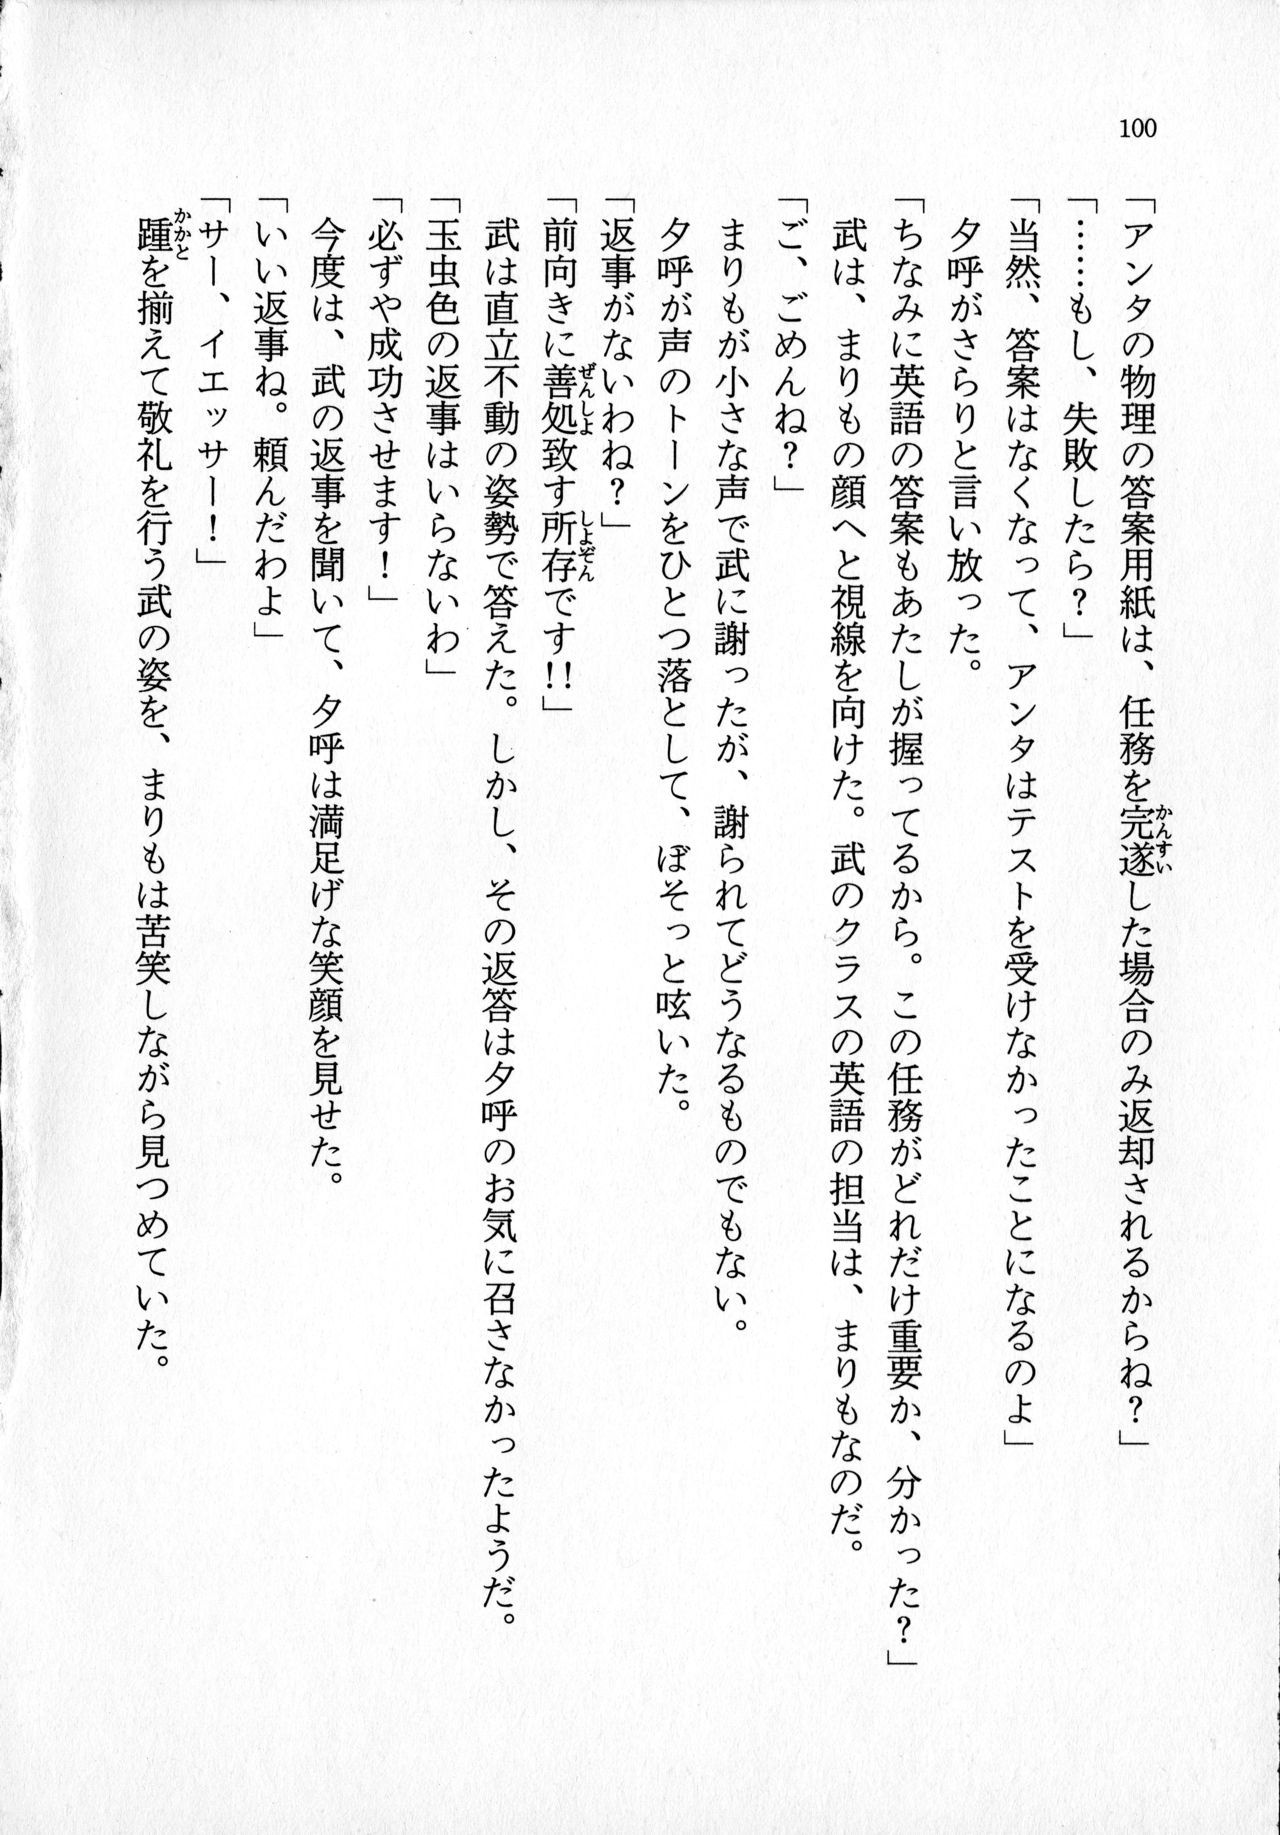 100
「アンタの物理の答案用紙は、任務を完遂した場合のみ返却されるからね？」
「……もし、失敗したら？」
「当然、答案はなくなって、アンタはテストを受けなかったことになるのよ」
夕呼がさらりと言い放った。
「ちなみに英語の答案もあたしが握ってるから。この任務がどれだけ重要か、分かった？」
武は、まりもの顔へと視線を向けた。武のクラスの英語の担当は、まりもなのだ。
「ご、ごめんね？」
まりもが小さな声で武に謝ったが、謝られてどうなるものでもない。
夕呼が声のトーンをひとつ落として、ぼそっと呟いた。
「返事がないわね？」
「前向きに善処致す所存です!!」
武は直立不動の姿勢で答えた。しかし、その返答は夕呼のお気に召さなかったようだ。
「玉虫色の返事はいらないわ」
「必ずや成功させます！」
今度は、武の返事を聞いて、夕呼は満足げな笑顔を見せた。
「いい返事ね。頼んだわよ」
「サー、イエッサー！」
踵を揃えて敬礼を行う武の姿を、まりもは苦笑しながら見つめていた。